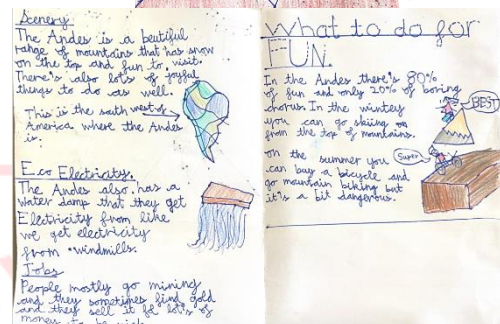 Scenery
The Andes is a beutiful
range of mountains that has snow
on the top and fun to visit.
There's also lots of joyful
things to do as well.
This is the south west of
America where the Andes
is.
Eco Electricity.
The Andes also has a
water damp that they get
Electricity from like
we get electricity
from windmills.
Jobs
People mostly go mining
and they sometimes find gold
and they sell it for lot's of
money to be rich
What to do for
FUN.
In the Andes there's 80%
of fun and only 20% of boring
chorus. In the wintey
you can go skiing
from the top of mountains.
BEST
on the summer you
can buy a bicycle and
go mountain biking but
it's a bit dangerous.
Super